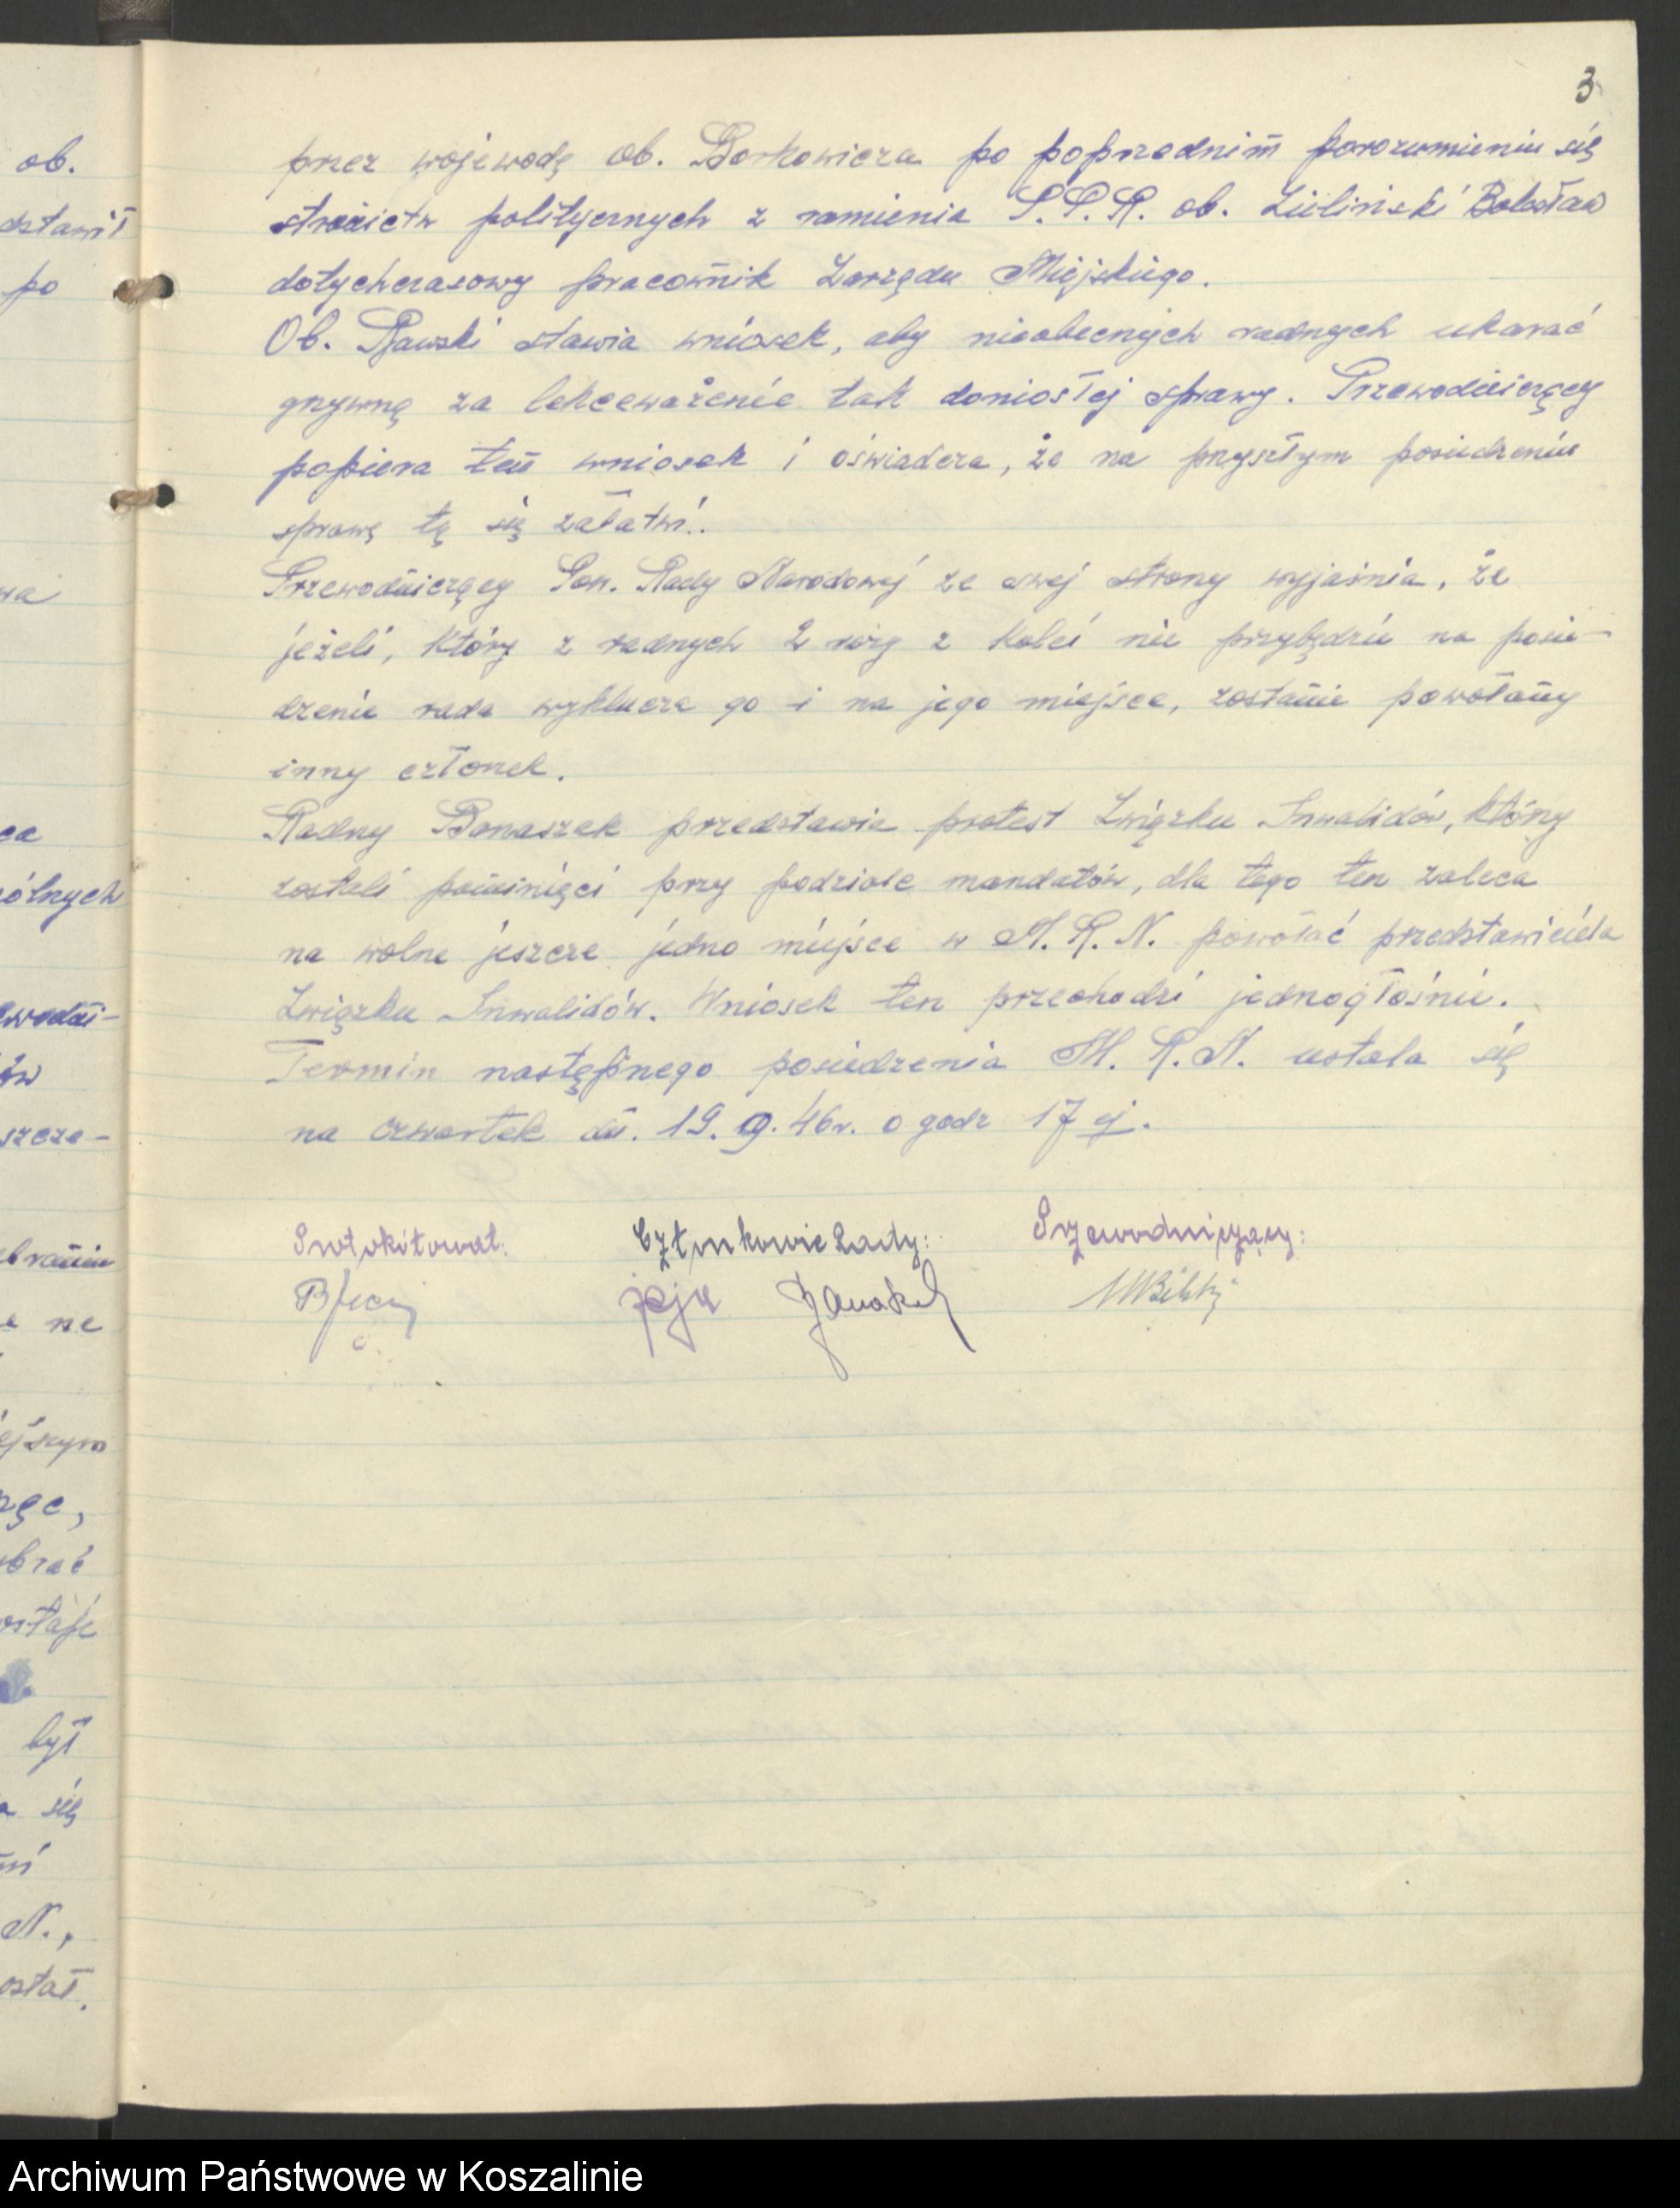 3
przez wojewodę ob. Borkowicza po poprzednim porozumieniu się
stronictw politycznych z ramienia P.P.R. ob. Zieliński Bolesław
dotychczasowy pracownik Zarządu Miejskiego.
Ob. Rawski stawia wniosek, aby nieobecnych radnych ukarać
grzywną za lekceważenie tak doniosłej sprawy. Przewodniczący
popiera ten wniosek i oświadcza, że na przyszłym posiedzeniu
sprawę tę się załatwi.
Przewodniczący Pow. Rady Narodowej ze swej strony wyjaśnia, że
jeżeli, który z radnych 2 razy z kolei nie przybędzie na posie-
dzenie rada wyklucza go i na jego miejsce, zostanie powołany
inny członek.
Radny Banaszak przedstawia protest Związku Inwalidów, który
zostali pominięci przy podziale mandatów, dla tego ten zaleca
na wolne jeszcze jedno miejsce w M.R.N. powołać przedstawiciela
Związku Inwalidów. Wniosek ten przechodzi jednogłośnie.
Termin następnego posiedzenia M.R.N. ustala się
na czwartek dn. 19.9.46r. o godz 17 ej.
Protokółował: Członkowie Rady: Przewodniczący:
ob.
dstawił
po
wa
ca
ólnych
wodni-
ów
szcze-
braniu
e ne
ejszym
brać
był
a się
N.,
ostał.
Archiwum Państwowe w Koszalinie